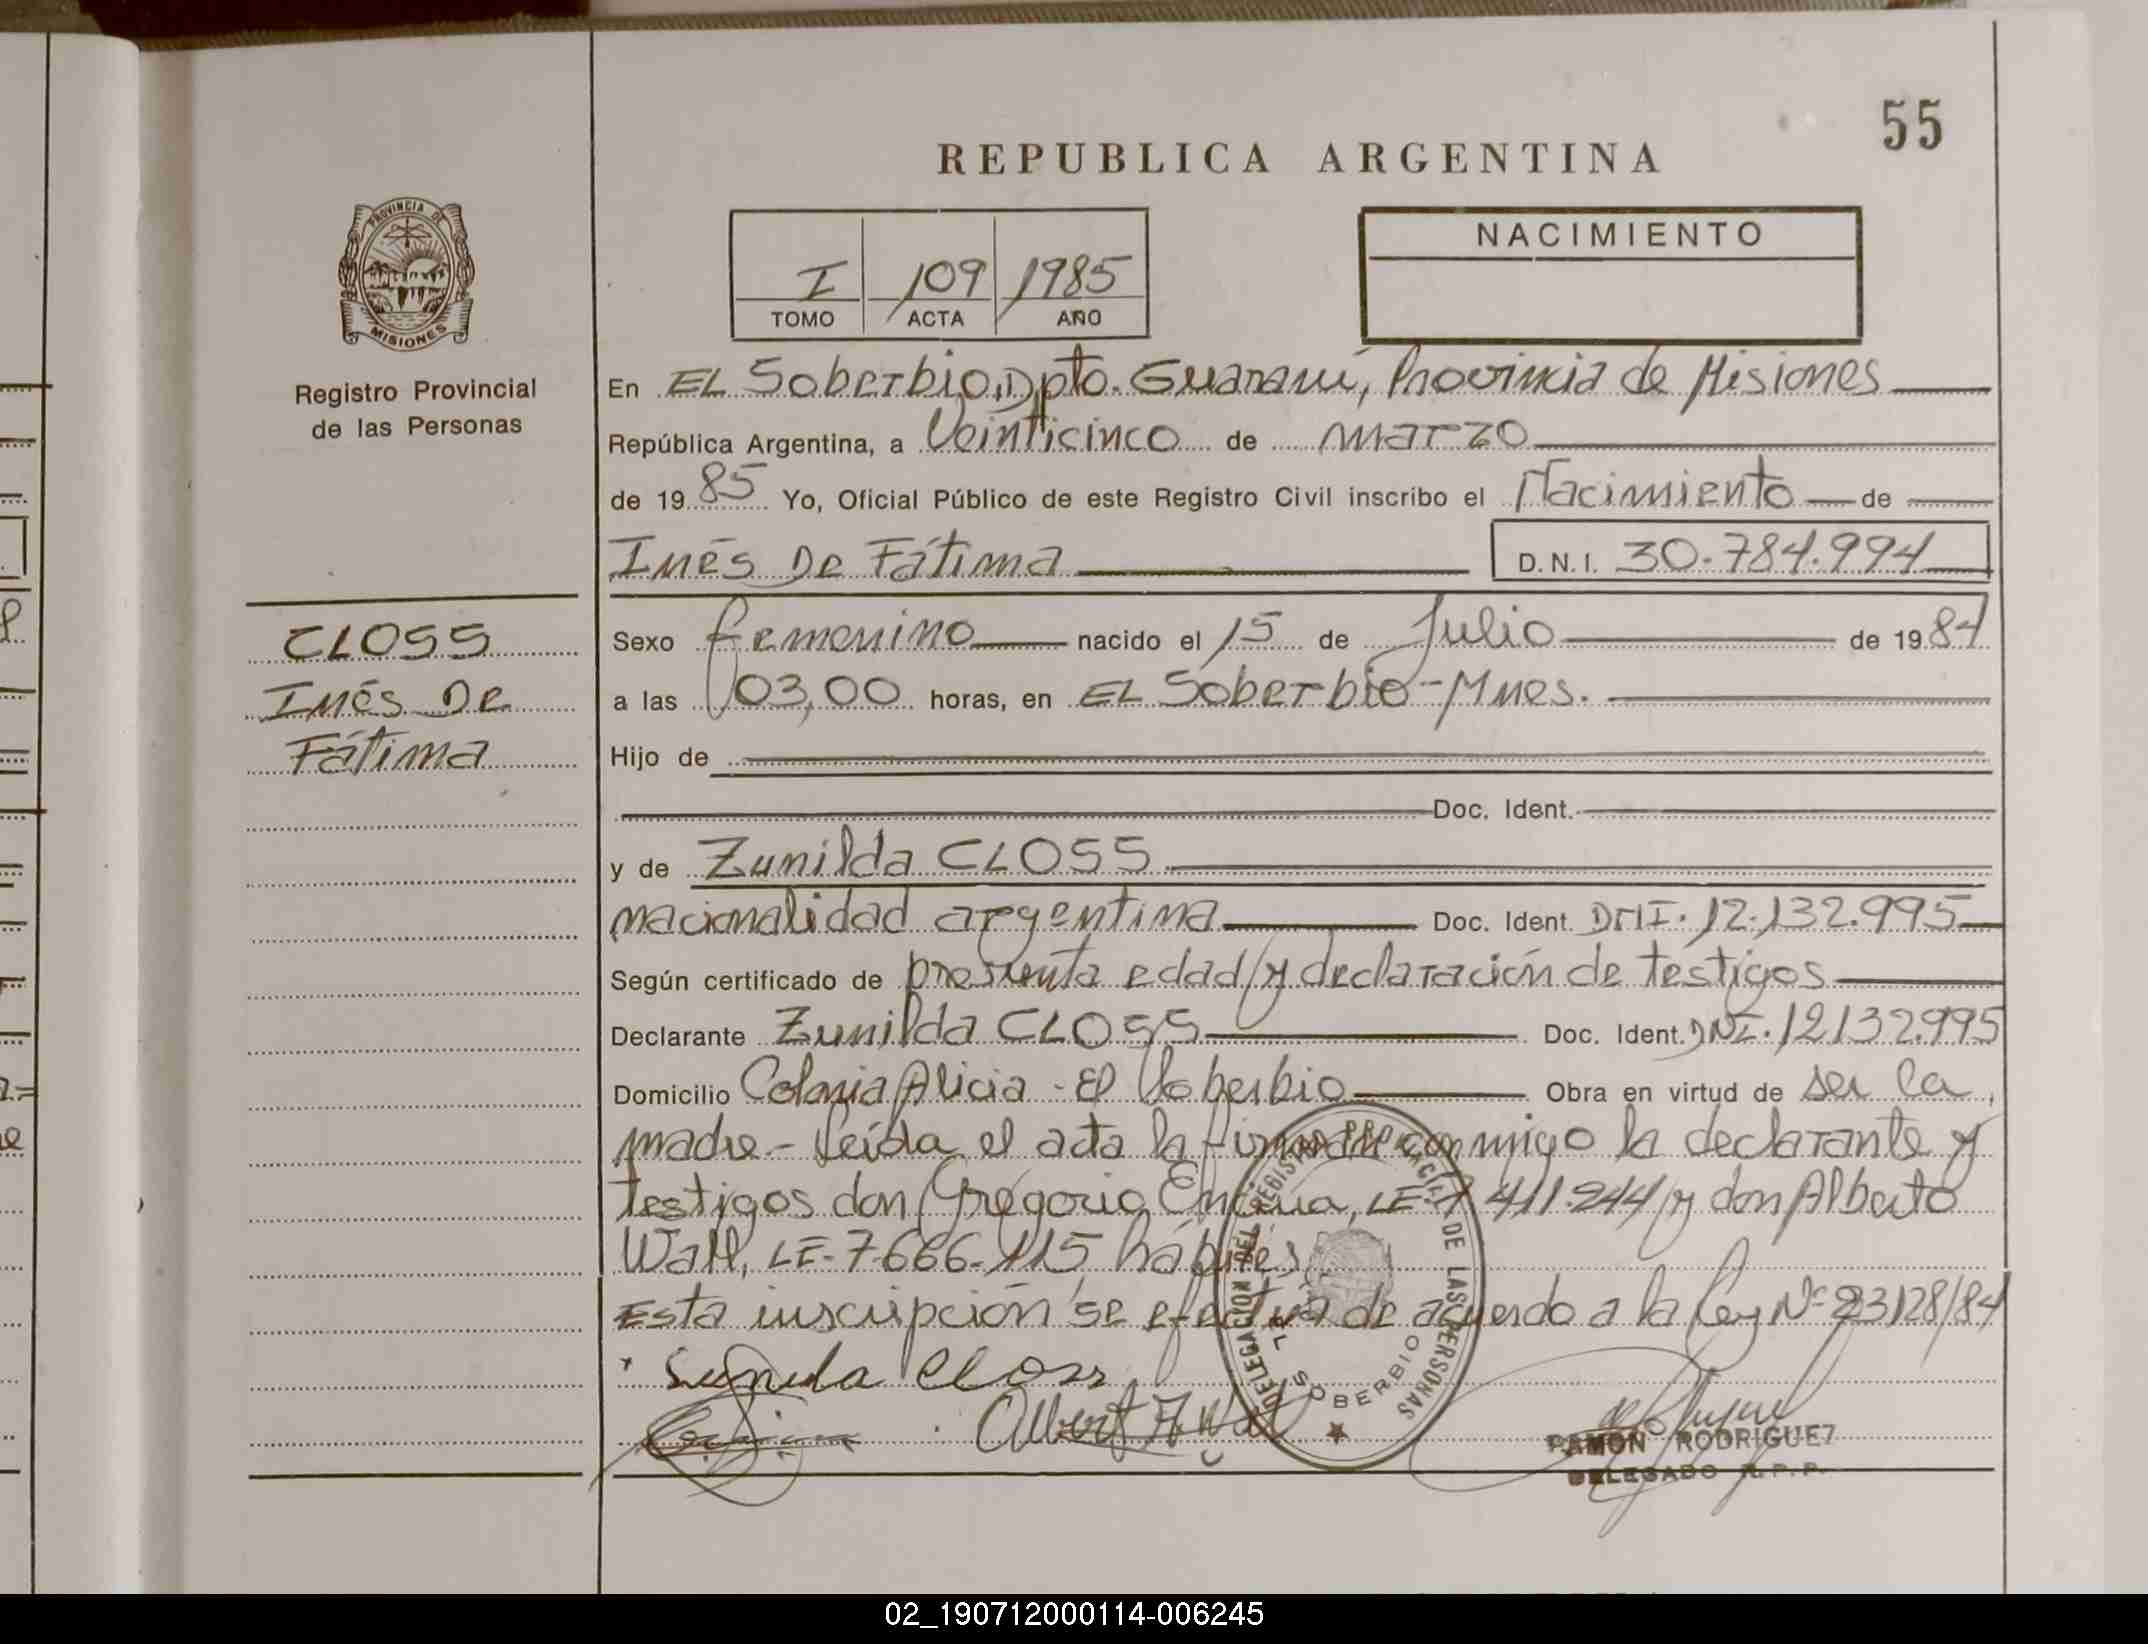 55
REPUBLICA ARGENTINA
PROVINCIA DE
MISIONES
Registro Provincial
de las Personas
NACIMIENTO
I 109 1985
TOMO ACTA AÑO
En EL Soberbio, Dpto. Guaraní, Provincia de Misiones
República Argentina, a Veinticinco de marzo
de 1985 Yo, Oficial Público de este Registro Civil inscribo el Nacimiento de
Inés De Fátima D.N.I. 30.784.994
CLOSS
Inés De
Fátima
Sexo femenino nacido el 15 de Julio de 1984
a las 03,00 horas, en EL Soberbio-Mnes.
Hijo de
Doc. Ident.
y de Zunilda CLOSS
nacionalidad argentina Doc. Ident. DNI. 12.132.995
Según certificado de presunta edad y declaración de testigos
Declarante Zunilda CLOSS Doc. Ident. DNI. 12132.995
Domicilio Colonia Alicia - El Soberbio Obra en virtud de ser la
madre - Leída el acta la firman conmigo la declarante y
testigos don Gregorio Encina, LE 7 411.244 y don Alberto
Wall, LE-7.666.115 hábiles
Esta inscripción se efectua de acuerdo a la Ley Nº 23128/84
DELEGACION DEL REGISTRO PROVINCIAL DE LAS PERSONAS
EL SOBERBIO
Closs
RAMON RODRIGUEZ
DELEGADO R.P.P.
02_190712000114-006245